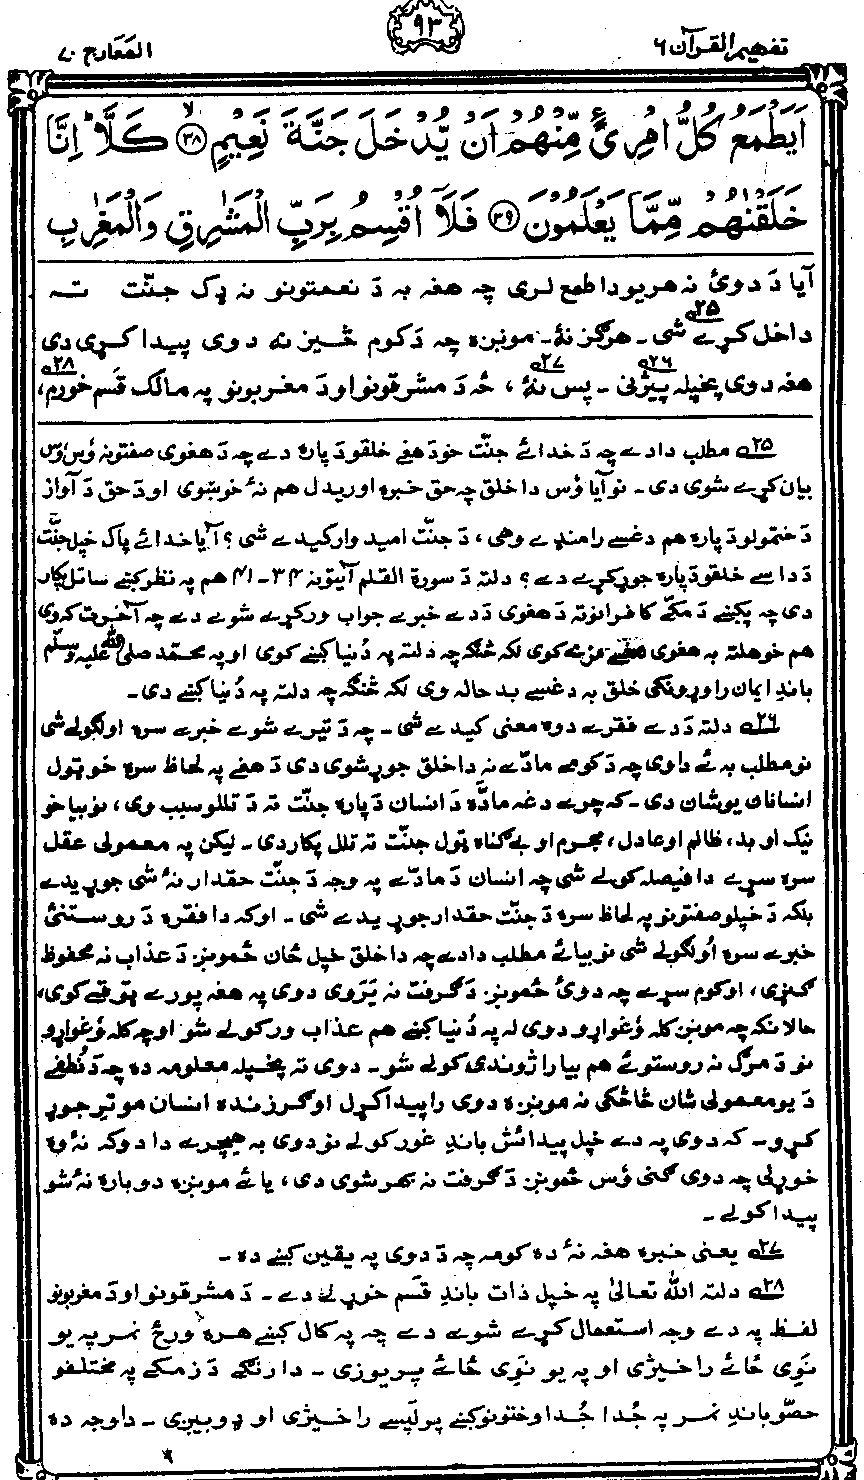 تفهیم القرآن ۶
۹۳
المَعَارج ۷۰
اَيَطْمَعُ كُلُّ امْرِئٍ مِّنْهُمْ اَنْ يُّدْخَلَ جَنَّةَ نَعِيْمٍ ﴿۳۸﴾ كَلَّا ؕ اِنَّا
خَلَقْنٰهُمْ مِّمَّا يَعْلَمُوْنَ ﴿۳۹﴾ فَلَآ اُقْسِمُ بِرَبِّ الْمَشٰرِقِ وَالْمَغٰرِبِ
آیا دَ دوئ نه هر یو دا طمع لری چه هغه به دَ نعمتونو نه ډک جنّت ته
داخل کړے شی ۲۵ـ هرګز نهٔ ـ مونږه چه دَ کوم څیز نه دوی پیدا کړی دی
هغه دوی پخپله پیژنی ۲۶ـ پس نهٔ ۲۷، څه دَ مشرقونو او دَ مغربونو په مالک قَسم خورم ۲۸،
۲۵ مطلب دا دے چه دَ خدائے جنّت خو دَ هغے خلقو دَ پاره دے چه دَ هغوی صفتونه وُس وُس
بیان کړے شوی دی ـ نو آیا وُس دا خلق چه حق خبره اوریدل هم نهٔ خوښوی او دَ حق دَ آواز
دَ ختمولو دَ پاره هم دغسے رامنډے وهی، دَ جنّت امید وار کیدے شی؟ آیا خدائے پاک خپل جنّت
دَ داسے خلقو دَ پاره جوړ کړے دے؟ دلته دَ سورة القلم آیتونه ۳۴ - ۴۱ هم په نظر کښے ساتل پکار
دی چه پکښے دَ مکّے کافرانو ته دَ هغوی دَ دے خبرے جواب ورکړے شوے دے چه آخرت که وی
هم خو هلته به هغوی مزے کوی لکه څنګه چه دلته په دُنیا کښے کوی او په محمّد صلی الله علیه وسلّم
باندِ ایمان راوړونکی خلق به دغسے بد حاله وی لکه څنګه چه دلته په دُنیا کښے دی ـ
۲۶ دلته دَ دے فقرے دوه معنی کیدے شی ـ چه دَ تیرے شوے خبرے سره اولګولے شی
نو مطلب به ئے دا وی چه دَ کومے مادّے نه دا خلق جوړ شوی دی دَ هغے په لحاظ سره خو ټول
انسانان یو شان دی ـ که چرے دغه مادّه دَ انسان دَ پاره جنّت ته دَ تللو سبب وی، نو بیا خو
نیک او بد، ظالم او عادل، مجرم او بے ګناه ټول جنّت ته تلل پکار دی ـ لیکن په معمولی عقل
سره سړے دا فیصله کولے شی چه انسان دَ مادّے په وجه دَ جنّت حقدار نهٔ شی جوړیدے
بلکه دَ خپلو صفتونو په لحاظ سره دَ جنّت حقدار جوړیدے شی ـ او که دا فقره دَ روستنئ
خبرے سره اُولګولے شی نو بیائے مطلب دا دے چه دا خلق خپل ځان خُمونږ دَ عذاب نه محفوظ
ګنړی، او کوم سړے چه دوئ خُمونږ دَ ګرفت نه یَرَوی دوی په هغه پورے ټوقے کوی،
حالانکه چه مونږ کله وُغواړو دوی له په دُنیا کښے هم عذاب ورکولے شو او چه کله وُغواړو
نو دَ مرګ نه روستو ئے هم بیا راژوندی کولے شو ـ دوی ته پخپله معلومه ده چه دَ نُطفے
دَ یو معمولی شان څاڅکی نه مونږه دوی را پیدا کړل او ګرزنده انسان مو ترِ جوړ
کړو ـ که دوی په دے خپل پیدائش باندِ غور کولے نو دوی به هیچرے دا دوکه نهٔ وه
خوړلی چه دوی ګنی وُس خُمونږ دَ ګرفت نه بهر شوی دی، یائے مونږه دوباره نهٔ شو
پیدا کولے ـ
۲۷ یعنی خبره هغه نهٔ ده کومه چه دَ دوی په یقین کښے ده ـ
۲۸ دلته اللّٰه تعالیٰ په خپل ذات باندِ قَسم خوړلے دے ـ دَ مشرقونو او دَ مغربونو
لفظ په دے وجه استعمال کړے شوے دے چه په کال کښے هره ورځ نمر په یو
نوَی ځائے راخیژی او په یو نوَی ځائے پریوزی ـ دارنګے دَ زمکے په مختلفو
حصّو باندِ نمر په جُدا جُدا وختونو کښے پرلپسے راخیژی او ډوبیږی ـ دا وجه ده